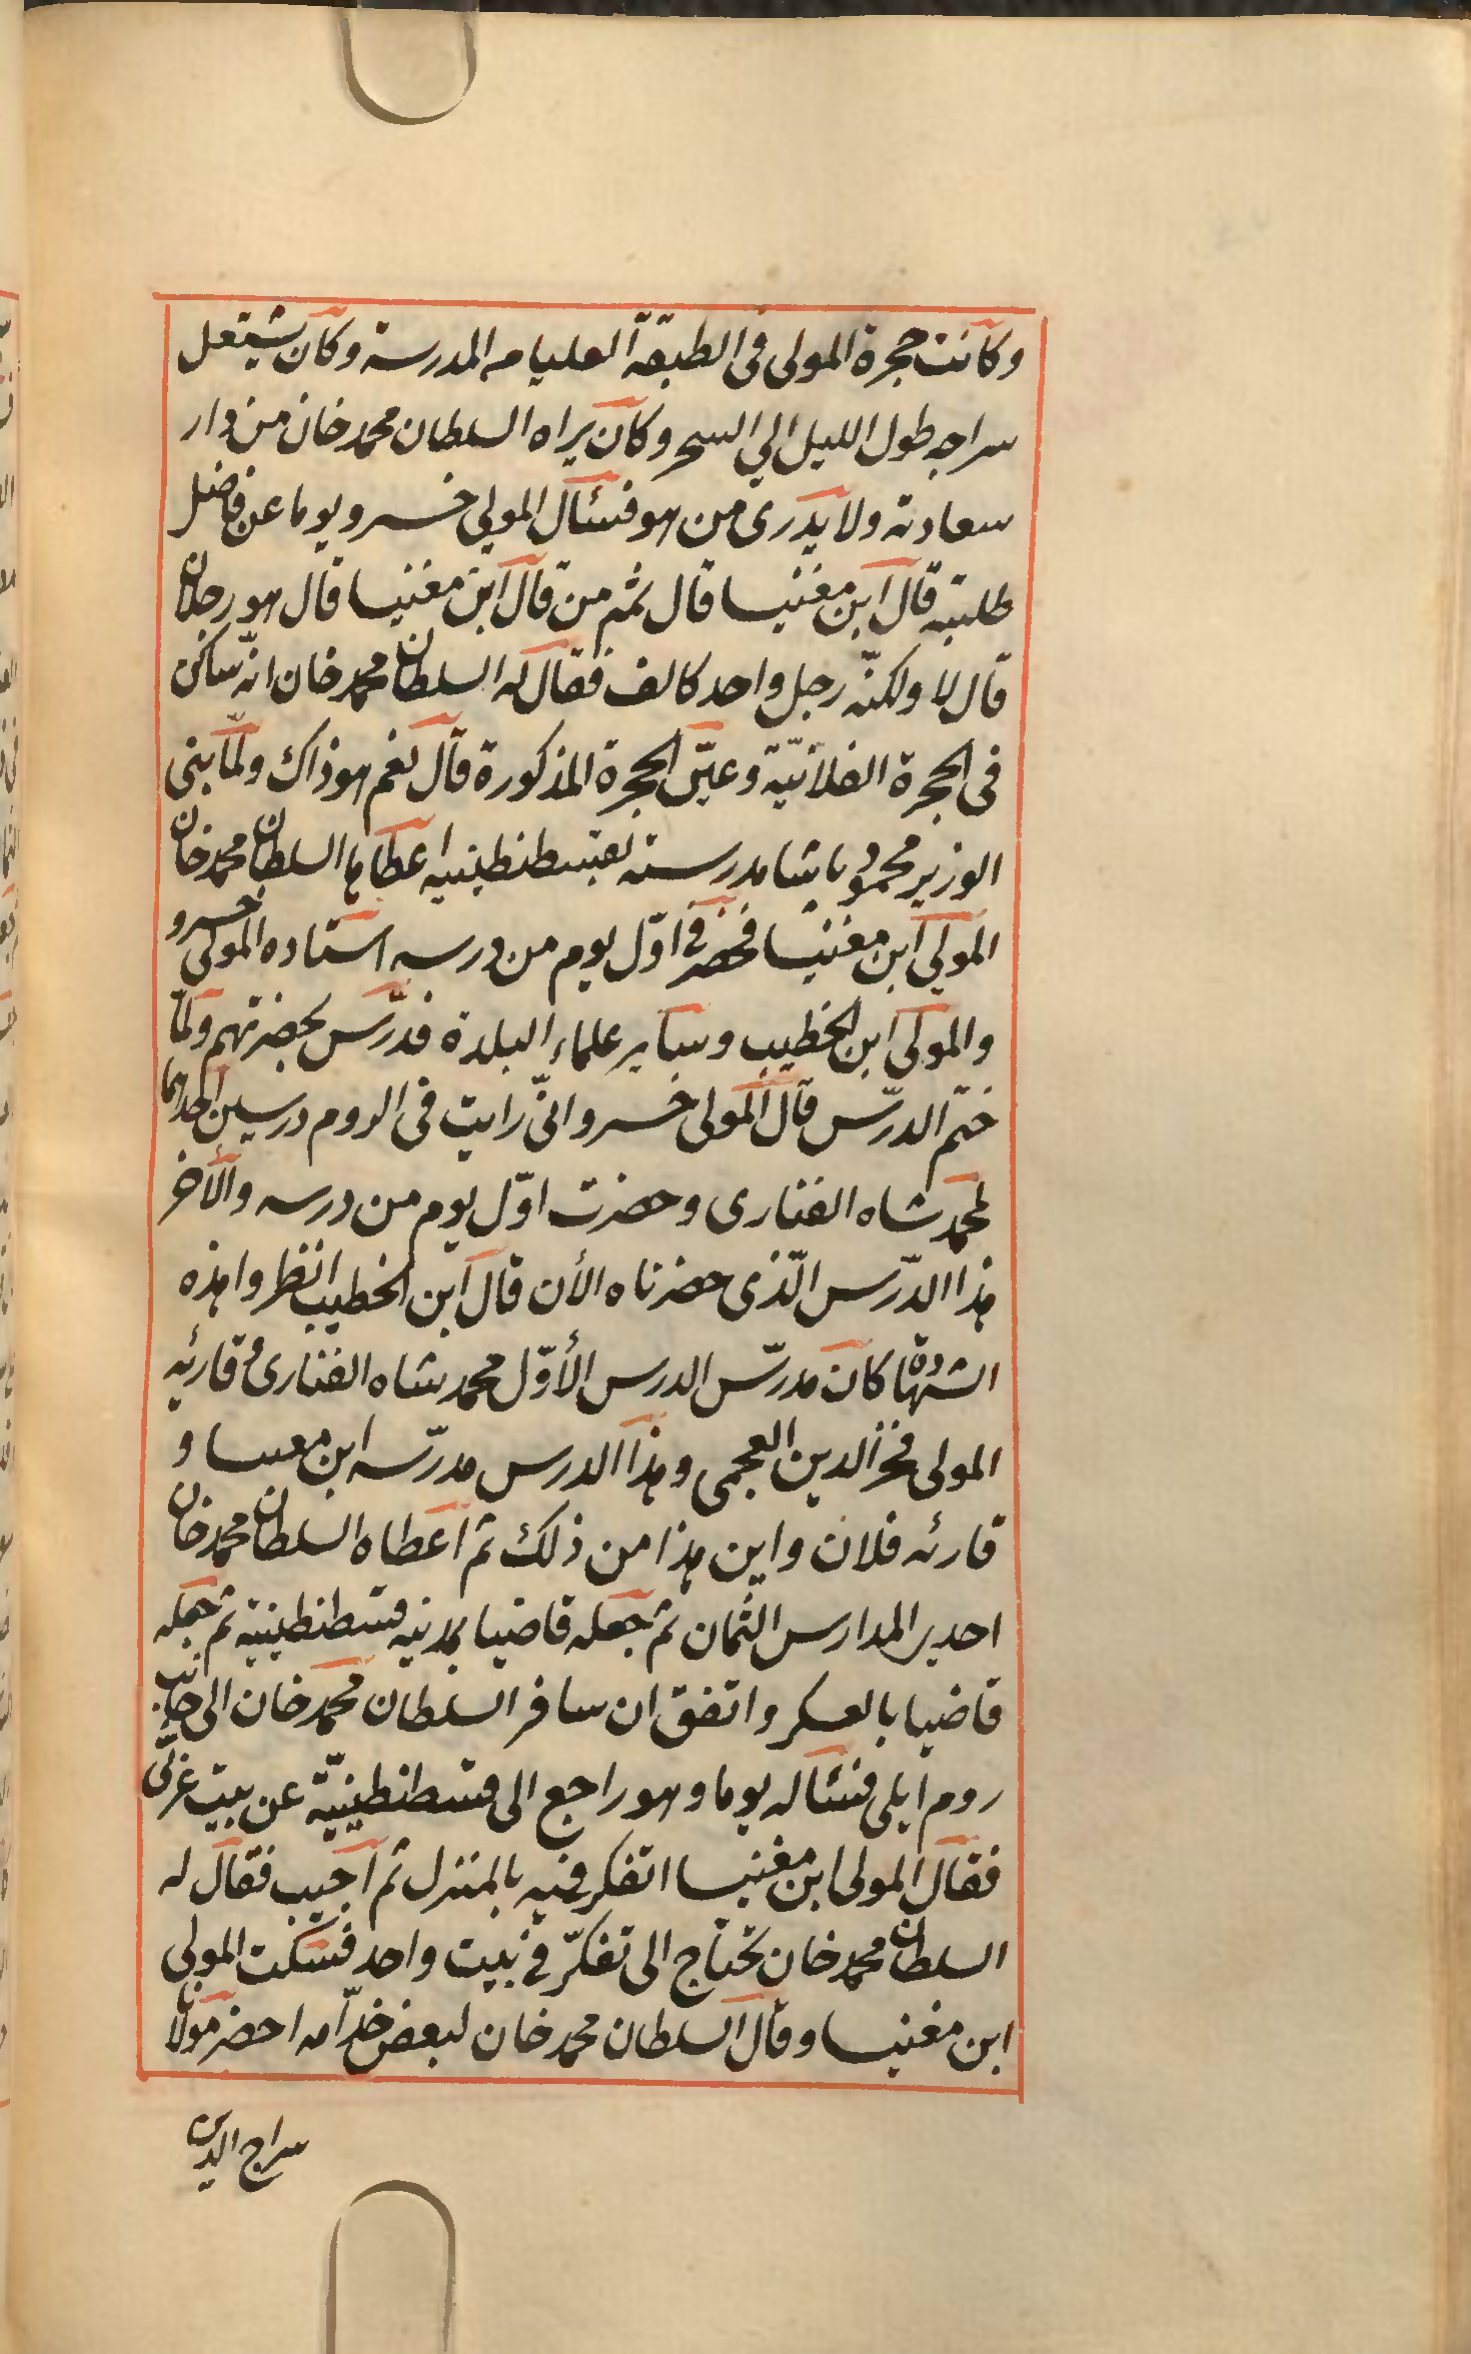 وكانت حجرة المولى فى الطبقة العليا من المدرسة وكان يشتعل
سراجه طول الليل الي السحر وكان يراه السلطان محمد خان من دار
سعادته ولا يدرى من هو فسئال المولي خسرو يوما عن فاضل
طلبته قال ابن مغنيسا قال ثم من قال ابن مغنيسا قال هو رجلان
قال لا ولكنّه رجل واحد كالف فقال له السلطان محمد خان انّه ساكن
فى الحجرة الفلانيّة وعيّن الحجرة المذكورة قال نعم هو ذاك ولمّا بنى
الوزير محمود باشا مدرسته بقسطنطينيه اعطاها السلطان محمد خان
المولي ابن مغنيسا فحضر فى اوّل يوم من درسه استاده المولى خسرو
والمولى ابن الخطيب وساير علماء البلدة فدرّس بحضرتهم ولمّا
ختم الدرّس قال المولى خسرو انّى رايت فى الروم درسين احداهما
لمحمد شاه الفنارى وحضرت اوّل يوم من درسه والآخر
هذا الدرّس الّذى حضرناه الأن قال ابن الخطيب انظروا هذه
الشهادة كان مدرّس الدرس الأوّل محمد شاه الفنارى و قارئه
المولى فخر الدين العجمى وهذا الدرس مدرّسه ابن مغنيسا و
قارئه فلان واين هذا من ذلك ثم اعطاه السلطان محمد خان
احدى المدارس الثمان ثم جعله قاضيا بمدينه قسطنطينية ثم جعله
قاضيا بالعسكر واتفق ان سافر السلطان محمد خان الى جانب
روم ايلى فسئاله يوما وهو راجع الى قسطنطينيّة عن بيت عربىّ
فقال المولى ابن مغنيسا اتفكر فيه بالمنزل ثم اجيب فقال له
السلطان محمد خان تحتاج الى تفكّر فى بيت واحد فسكت المولى
ابن مغنيسا وقال السلطان محمد خان لبعض خدّامه احضر مولانا
سراج الدين